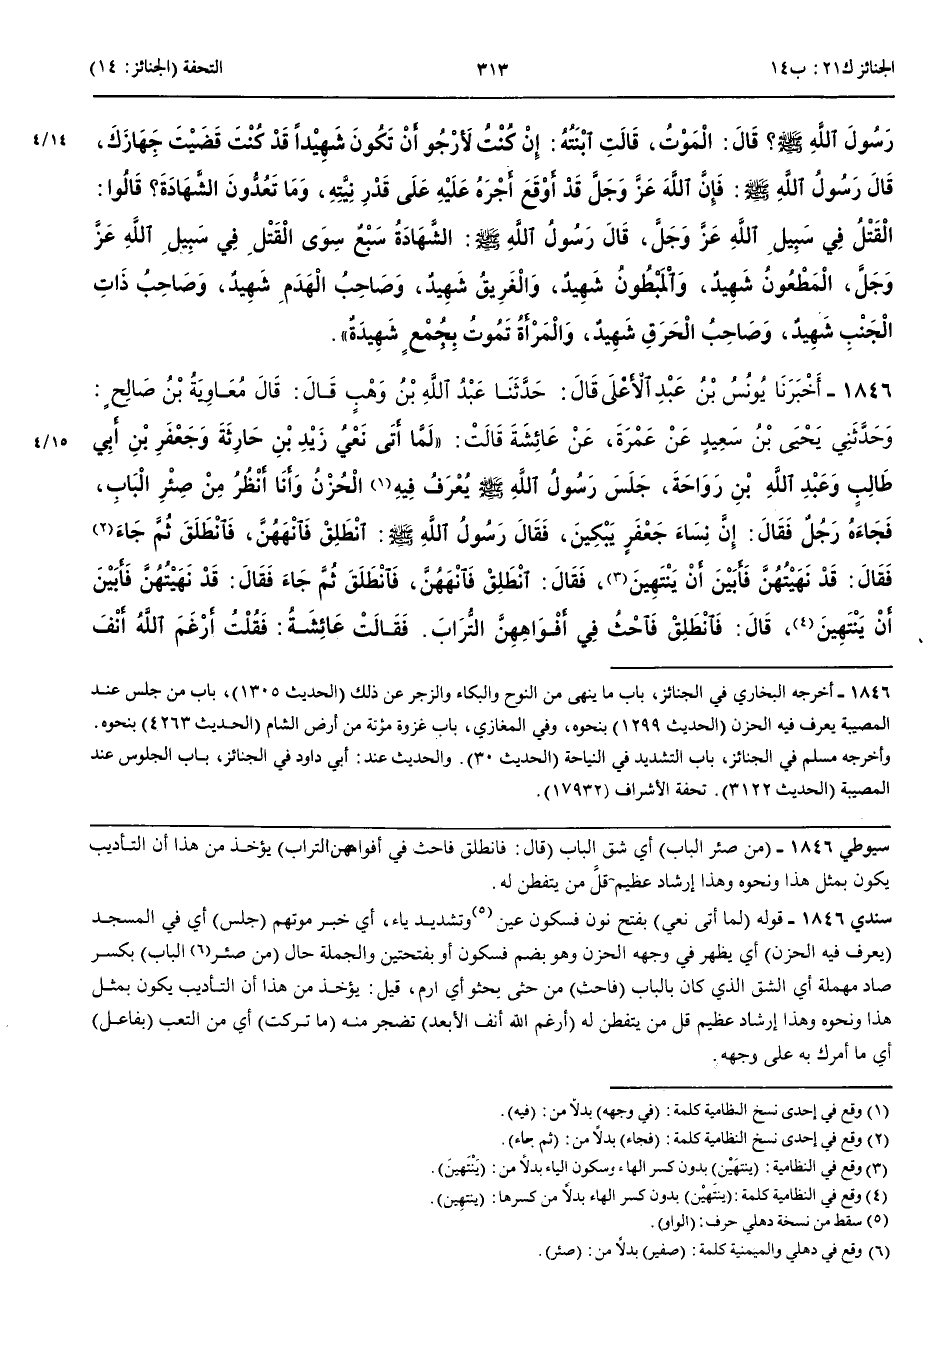 الجنائز ك٢١: ب١٤ ٣١٣ التحفة (الجنائز: ١٤)
رَسُولَ اللَّهِ ﷺ؟ قَالَ: الْمَوْتُ، قَالَتِ ٱبْنَتُهُ: إِنْ كُنْتُ لَأَرْجُو أَنْ تَكُونَ شَهِيْداً قَدْ كُنْتَ قَضَيْتَ جِهَازَكَ، ٤/١٤
قَالَ رَسُولُ اللَّهِ ﷺ: فَإِنَّ اللَّهَ عَزَّ وَجَلَّ قَدْ أَوْقَعَ أَجْرَهُ عَلَيْهِ عَلَى قَدْرِ نِيَّتِهِ، وَمَا تَعُدُّونَ الشَّهَادَةَ؟ قَالُوا:
الْقَتْلُ فِي سَبِيلِ اللَّهِ عَزَّ وَجَلَّ، قَالَ رَسُولُ اللَّهِ ﷺ: الشَّهَادَةُ سَبْعٌ سِوَى الْقَتْلِ فِي سَبِيلِ اللَّهِ عَزَّ
وَجَلَّ، الْمَطْعُونُ شَهِيدٌ، وَٱلْمَبْطُونُ شَهِيدٌ، وَالْغَرِيقُ شَهِيدٌ، وَصَاحِبُ الْهَدَمِ شَهِيدٌ، وَصَاحِبُ ذَاتِ
الْجَنْبِ شَهِيدٌ، وَصَاحِبُ الْحَرَقِ شَهِيدٌ، وَالْمَرْأَةُ تَمُوتُ بِجُمْعٍ شَهِيدَةٌ».
١٨٤٦ ـ أَخْبَرَنَا يُونُسُ بْنُ عَبْدِ الْأَعْلَى قَالَ: حَدَّثَنَا عَبْدُ اللَّهِ بْنُ وَهْبٍ قَالَ: قَالَ مُعَاوِيَةُ بْنُ صَالِحٍ:
وَحَدَّثَنِي يَحْيَى بْنُ سَعِيدٍ عَنْ عَمْرَةَ، عَنْ عَائِشَةَ قَالَتْ: «لَمَّا أَتَى نَعْيُ زَيْدِ بْنِ حَارِثَةَ وَجَعْفَرِ بْنِ أَبِي ٤/١٥
طَالِبٍ وَعَبْدِ اللَّهِ بْنِ رَوَاحَةَ، جَلَسَ رَسُولُ اللَّهِ ﷺ يُعْرَفُ فِيهِ(١) الْحُزْنُ وَأَنَا أَنْظُرُ مِنْ صِئْرِ الْبَابِ،
فَجَاءَهُ رَجُلٌ فَقَالَ: إِنَّ نِسَاءَ جَعْفَرٍ يَبْكِينَ، فَقَالَ رَسُولُ اللَّهِ ﷺ: ٱنْطَلِقْ فَٱنْهَهُنَّ، فَٱنْطَلَقَ ثُمَّ جَاءَ(٢)
فَقَالَ: قَدْ نَهَيْتُهُنَّ فَأَبَيْنَ أَنْ يَنْتَهِينَ(٣)، فَقَالَ: ٱنْطَلِقْ فَٱنْهَهُنَّ، فَٱنْطَلَقَ ثُمَّ جَاءَ فَقَالَ: قَدْ نَهَيْتُهُنَّ فَأَبَيْنَ
أَنْ يَنْتَهِينَ(٤)، قَالَ: فَٱنْطَلِقْ فَٱحْثُ فِي أَفْوَاهِهِنَّ التُّرَابَ. فَقَالَتْ عَائِشَةُ: فَقُلْتُ أَرْغَمَ اللَّهُ أَنْفَ
١٨٤٦ ـ أخرجه البخاري في الجنائز، باب ما ينهى من النوح والبكاء والزجر عن ذلك (الحديث ١٣٠٥)، باب من جلس عند
المصيبة يعرف فيه الحزن (الحديث ١٢٩٩) بنحوه، وفي المغازي، باب غزوة مؤتة من أرض الشام (الحديث ٤٢٦٣) بنحوه.
وأخرجه مسلم في الجنائز، باب التشديد في النياحة (الحديث ٣٠). والحديث عند: أبي داود في الجنائز، باب الجلوس عند
المصيبة (الحديث ٣١٢٢). تحفة الأشراف (١٧٩٣٢).
سيوطي ١٨٤٦ ـ (من صئر الباب) أي شق الباب (قال: فانطلق فاحث في أفواههن التراب) يؤخذ من هذا أن التأديب
يكون بمثل هذا ونحوه وهذا إرشاد عظيم قلَّ من يتفطن له.
سندي ١٨٤٦ ـ قوله (لما أتى نعي) بفتح نون فسكون عين (٥)وتشديد ياء، أي خبر موتهم (جلس) أي في المسجد
(يعرف فيه الحزن) أي يظهر في وجهه الحزن وهو بضم فسكون أو بفتحتين والجملة حال (من صئر(٦) الباب) بكسر
صاد مهملة أي الشق الذي كان بالباب (فاحث) من حثى يحثو أي ارم، قيل: يؤخذ من هذا أن التأديب يكون بمثل
هذا ونحوه وهذا إرشاد عظيم قل من يتفطن له (أرغم الله أنف الأبعد) تضجر منه (ما تركت) أي من التعب (بفاعل)
أي ما أمرك به على وجهه.
(١) وقع في إحدى نسخ النظامية كلمة: (في وجهه) بدلاً من: (فيه).
(٢) وقع في إحدى نسخ النظامية كلمة: (فجاء) بدلاً من: (ثم جاء).
(٣) وقع في النظامية: (ينتهَيْن) بدون كسر الهاء وسكون الياء بدلاً من: (يَنْتَهِينَ).
(٤) وقع في النظامية كلمة: (ينتَهَيْن) بدون كسر الهاء بدلاً من كسرها: (ينتهِين).
(٥) سقط من نسخة دهلي حرف: (الواو).
(٦) وقع في دهلي والميمنية كلمة: (صفير) بدلاً من: (صئر).